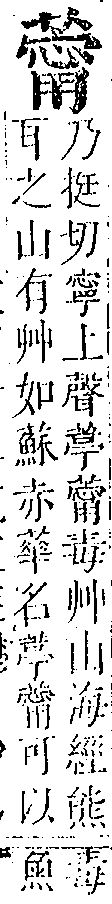 䔭
乃挺切寧上聲葶䔭毒艸山海經熊
耳之山有艸如蘇赤華名葶䔭可以
毒
魚